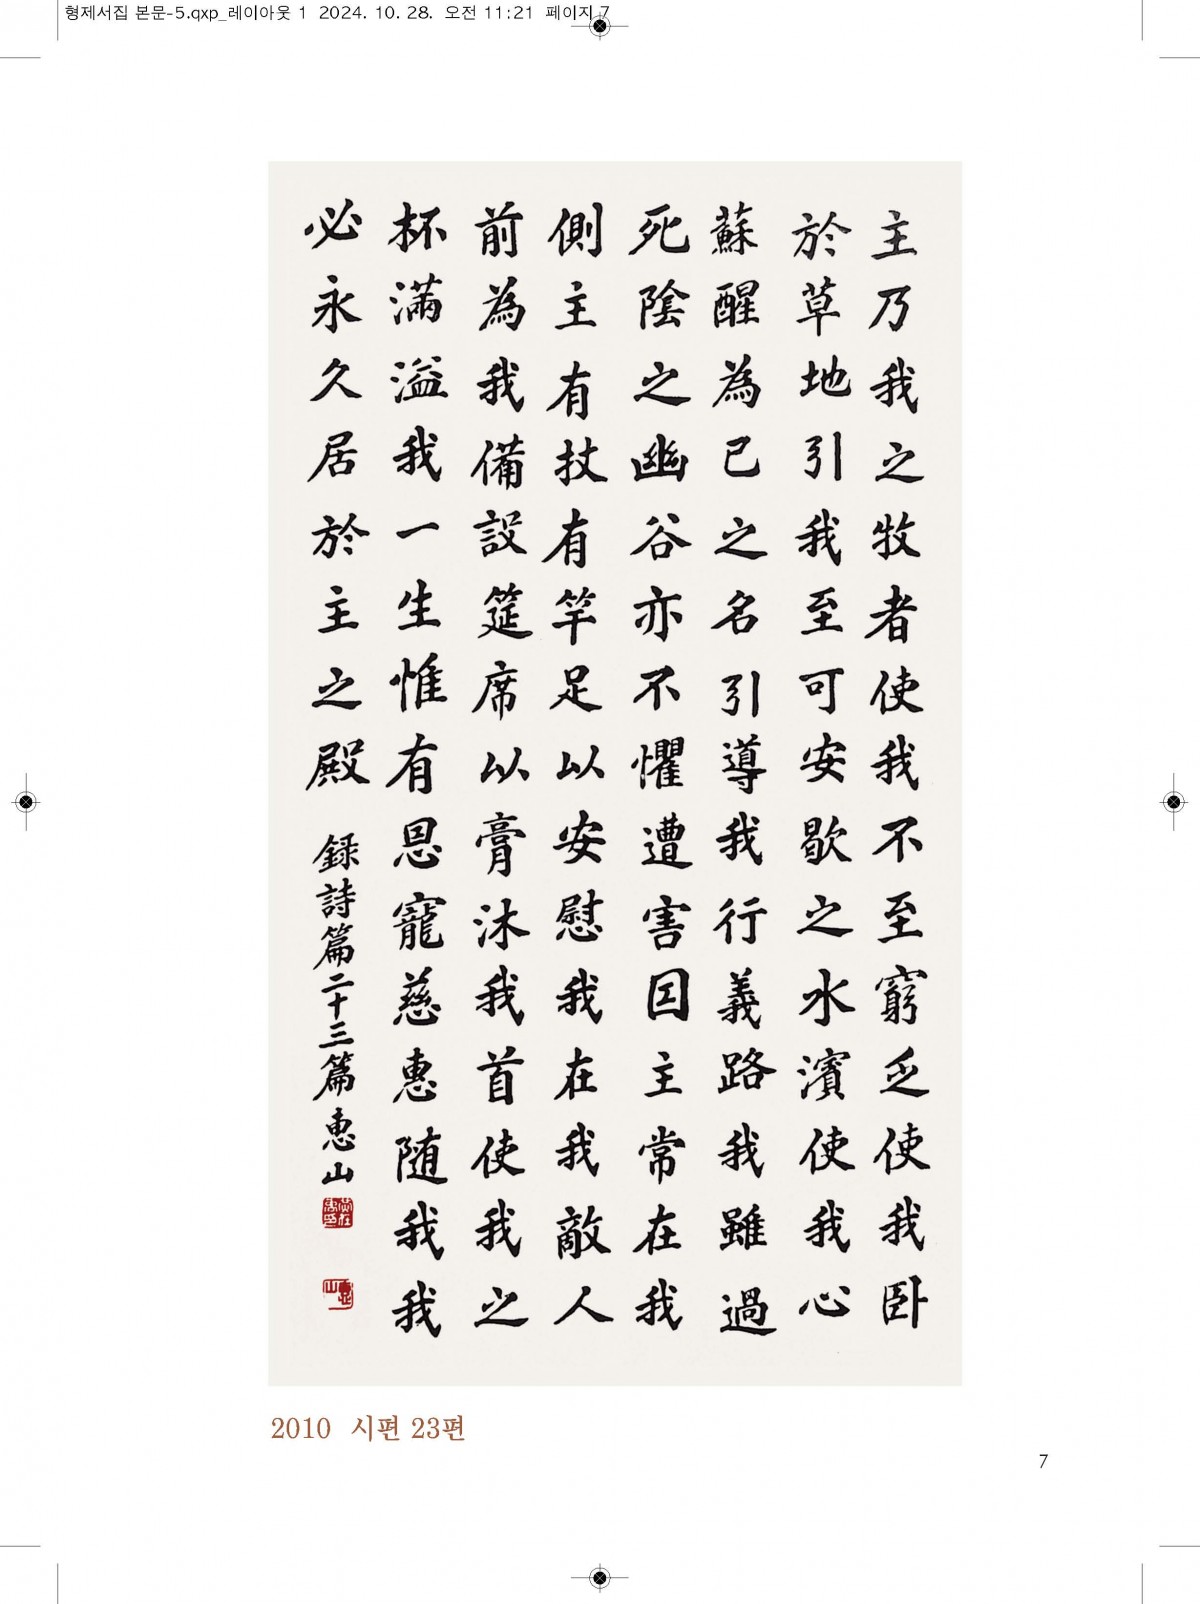 형제서집 본문-5.qxp_레이아웃 1 2024. 10. 28. 오전 11:21 페이지 7
主乃我之牧者使我不至窮乏使我卧
於草地引我至可安歇之水濱使我心
蘇醒為已之名引導我行義路我雖過
死陰之幽谷亦不懼遭害因主常在我
側主有杖有竿足以安慰我在我敵人
前為我備設筵席以膏沐我首使我之
杯滿溢我一生惟有恩寵慈惠随我我
必永久居於主之殿 録詩篇二十三篇惠山
2010 시편 23편
7